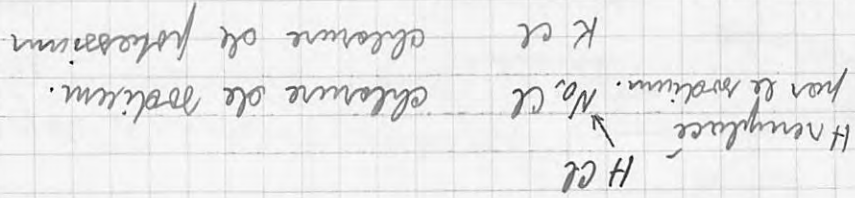 H Cl
H remplacé
par le sodium. Na Cl chlorure de sodium.
K Cl chlorure de potassium